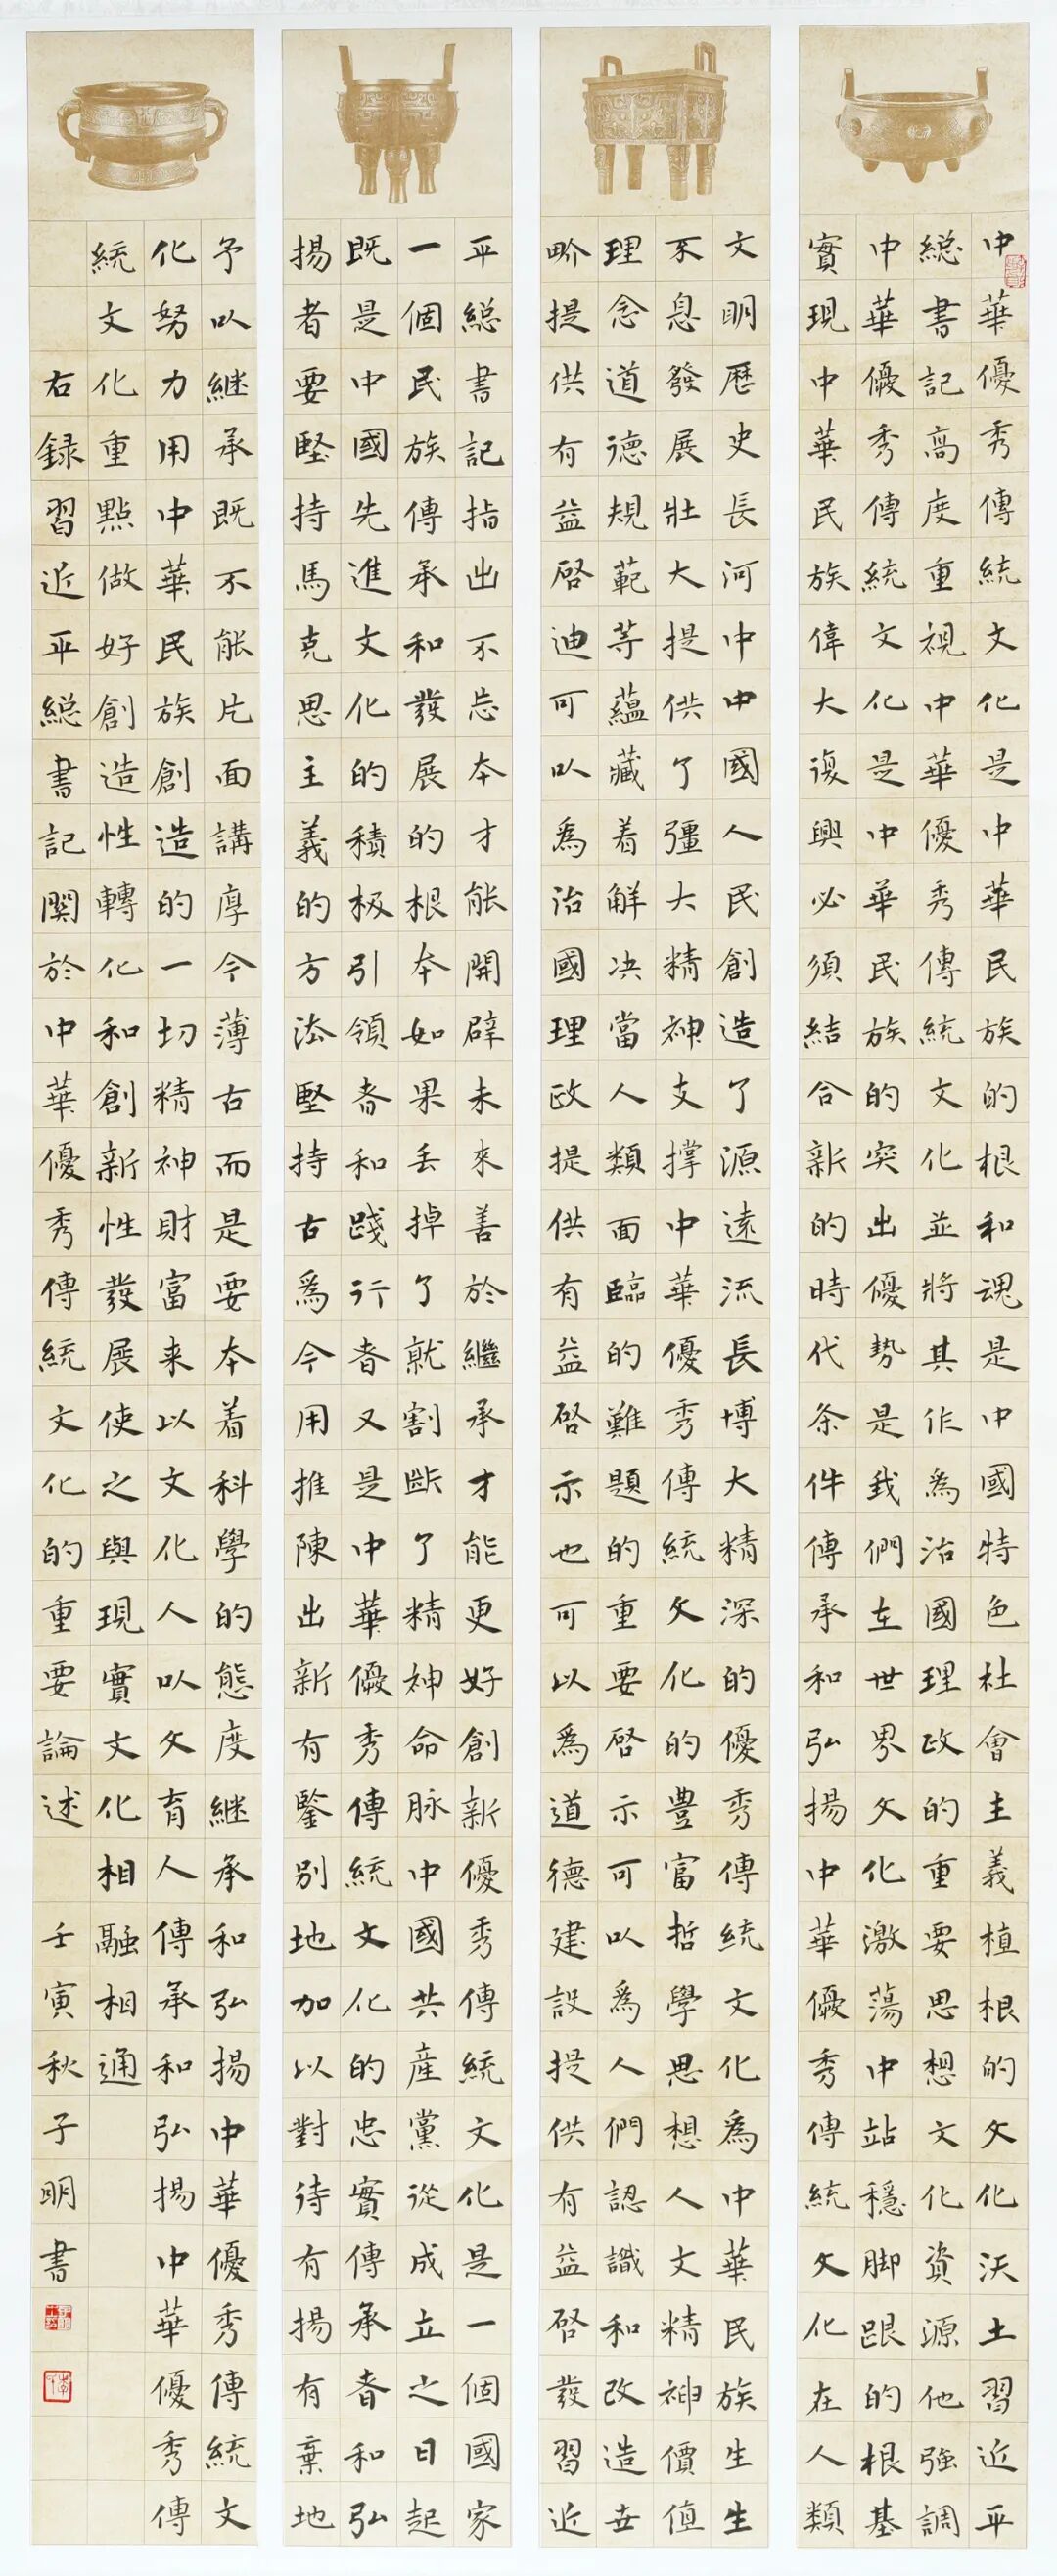 中華優秀傳統文化是中華民族的根和魂是中國特色社會主義植根的文化沃土習近平
總書記高度重視中華優秀傳統文化並將其作為治國理政的重要思想文化資源他強調
中華優秀傳統文化是中華民族的突出優勢是我們在世界文化激蕩中站穩脚跟的根基
實現中華民族偉大復興必須結合新的時代条件傳承和弘揚中華優秀傳統文化在人類
文明歷史長河中中國人民創造了源遠流長博大精深的優秀傳統文化為中華民族生生
不息發展壯大提供了彊大精神支撐中華優秀傳統文化的豐富哲學思想人文精神價值
理念道德規範等蘊藏着解决當人類面臨的難題的重要啓示可以為人們認識和改造世
畍提供有益啓迪可以為治國理政提供有益啓示也可以為道德建設提供有益啓發習近
平總書記指出不忘本才能開辟未來善於繼承才能更好創新優秀傳統文化是一個國家
一個民族傳承和發展的根本如果丢掉了就割斷了精神命脉中國共産黨從成立之日起
既是中國先進文化的積极引領者和踐行者又是中華優秀傳統文化的忠實傳承者和弘
揚者要堅持馬克思主義的方法堅持古為今用推陳出新有鑒別地加以對待有揚有棄地
予以継承既不能片面講厚今薄古而是要本着科學的態度継承和弘揚中華優秀傳統文
化努力用中華民族創造的一切精神財富来以文化人以文育人傳承和弘揚中華優秀傳
統文化重點做好創造性轉化和創新性發展使之與現實文化相融相通
右録習近平總書記關於中華優秀傳統文化的重要論述 壬寅秋子明書